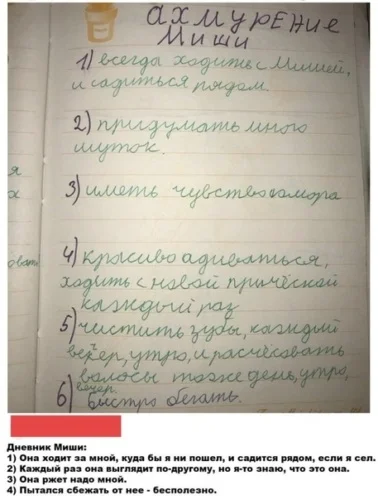 АХМУРЕНИЕ
МИШИ
1) всегда ходить с Мишей,
и садиться рядом.
2) придумать много
шуток.
3) иметь чувство юмора
4) красиво адиваться,
ходить с новой причёской
каждый раз
5) чистить зубы, каждый
вечер, утро, и расчёсовать
волосы тоже день, утро,
вечер.
6) Быстро бегать.
я
х
Дневник Миши:
1) Она ходит за мной, куда бы я ни пошел, и садится рядом, если я сел.
2) Каждый раз она выглядит по-другому, но я-то знаю, что это она.
3) Она ржет надо мной.
4) Пытался сбежать от нее - бесполезно.